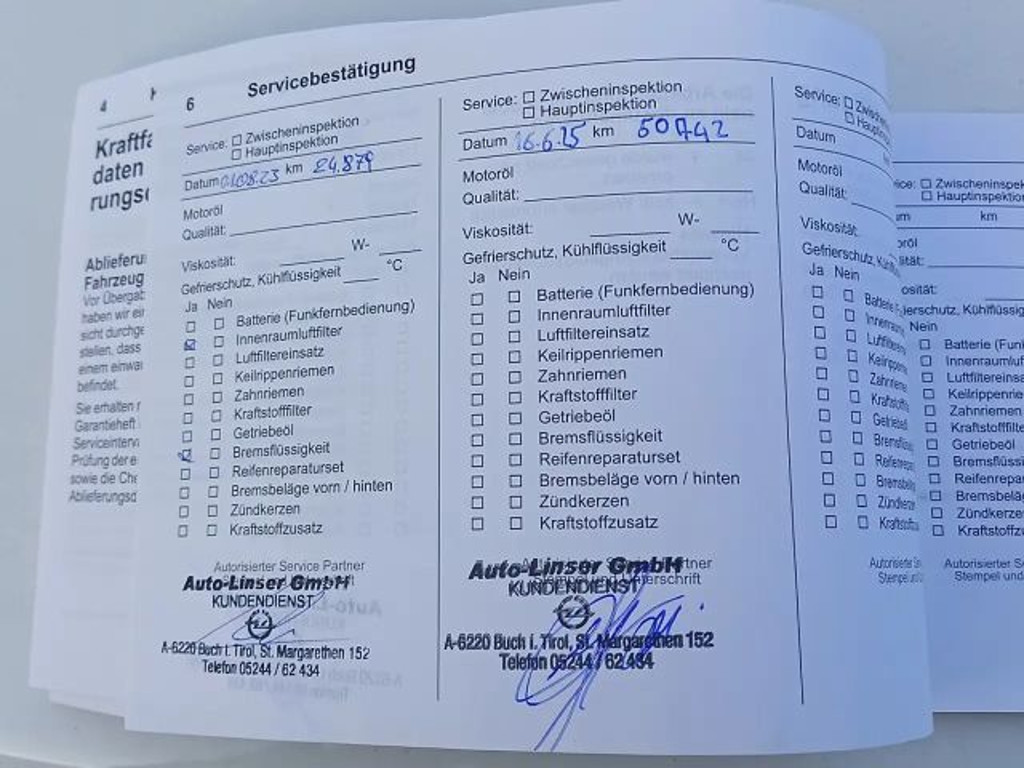 4
Kraftfa
daten
rungs
Ablieferu
Fahrzeug
Vor Übergab
haben wir ei
sicht durchge
stellen, dass
einem einwa
befindet.
Sie erhalten
Garantieheft
Serviceinterv
Prüfung der e
sowie die Che
Ablieferungsd
6 Servicebestätigung
Service: ☐ Zwischeninspektion
☐ Hauptinspektion
Datum 01.08.23 km 24.879
Motoröl
Qualität:
Viskosität: W-
Gefrierschutz, Kühlflüssigkeit °C
Ja Nein
☐ ☐ Batterie (Funkfernbedienung)
☑ ☐ Innenraumluftfilter
☐ ☐ Luftfiltereinsatz
☐ ☐ Keilrippenriemen
☐ ☐ Zahnriemen
☐ ☐ Kraftstofffilter
☐ ☐ Getriebeöl
☑ ☐ Bremsflüssigkeit
☐ ☐ Reifenreparaturset
☐ ☐ Bremsbeläge vorn / hinten
☐ ☐ Zündkerzen
☐ ☐ Kraftstoffzusatz
Autorisierter Service Partner
Auto-Linser GmbH
KUNDENDIENST
A-6220 Buch i. Tirol, St. Margarethen 152
Telefon 05244 / 62 434
Service: ☐ Zwischeninspektion
☐ Hauptinspektion
Datum 16.6.25 km 50742
Motoröl
Qualität:
Viskosität: W-
Gefrierschutz, Kühlflüssigkeit °C
Ja Nein
☐ ☐ Batterie (Funkfernbedienung)
☐ ☐ Innenraumluftfilter
☐ ☐ Luftfiltereinsatz
☐ ☐ Keilrippenriemen
☐ ☐ Zahnriemen
☐ ☐ Kraftstofffilter
☐ ☐ Getriebeöl
☐ ☐ Bremsflüssigkeit
☐ ☐ Reifenreparaturset
☐ ☐ Bremsbeläge vorn / hinten
☐ ☐ Zündkerzen
☐ ☐ Kraftstoffzusatz
Autorisierter Service Partner
Stempel und Unterschrift
Auto-Linser GmbH
KUNDENDIENST
A-6220 Buch i. Tirol, St. Margarethen 152
Telefon 05244 / 62 434
Service: ☐ Zwische
☐ Haupti
Datum
Motoröl
Qualität:
Viskosität:
Gefrierschutz, Kühl
Ja Nein
☐ ☐ Batterie
☐ ☐ Innenraum
☐ ☐ Luftfiltere
☐ ☐ Keilrippe
☐ ☐ Zahnrieme
☐ ☐ Kraftstoffi
☐ ☐ Getriebeöl
☐ ☐ Bremsflüss
☐ ☐ Reifenrepa
☐ ☐ Bremsbeläg
☐ ☐ Zündkerze
☐ ☐ Kraftstoffz
Autorisierter Se
Stempel und
ice: ☐ Zwischeninspek
☐ Hauptinspektion
um km
oröl
lität:
osität:
rierschutz, Kühlflüssig
Nein
☐ Batterie (Funk
☐ Innenraumluf
☐ Luftfiltereinsat
☐ Keilrippenrie
☐ Zahnriemen
☐ Kraftstofffilte
☐ Getriebeöl
☐ Bremsflüssi
☐ Reifenrepar
☐ Bremsbeläg
☐ Zündkerze
☐ Kraftstoffzu
Autorisierter S
Stempel und